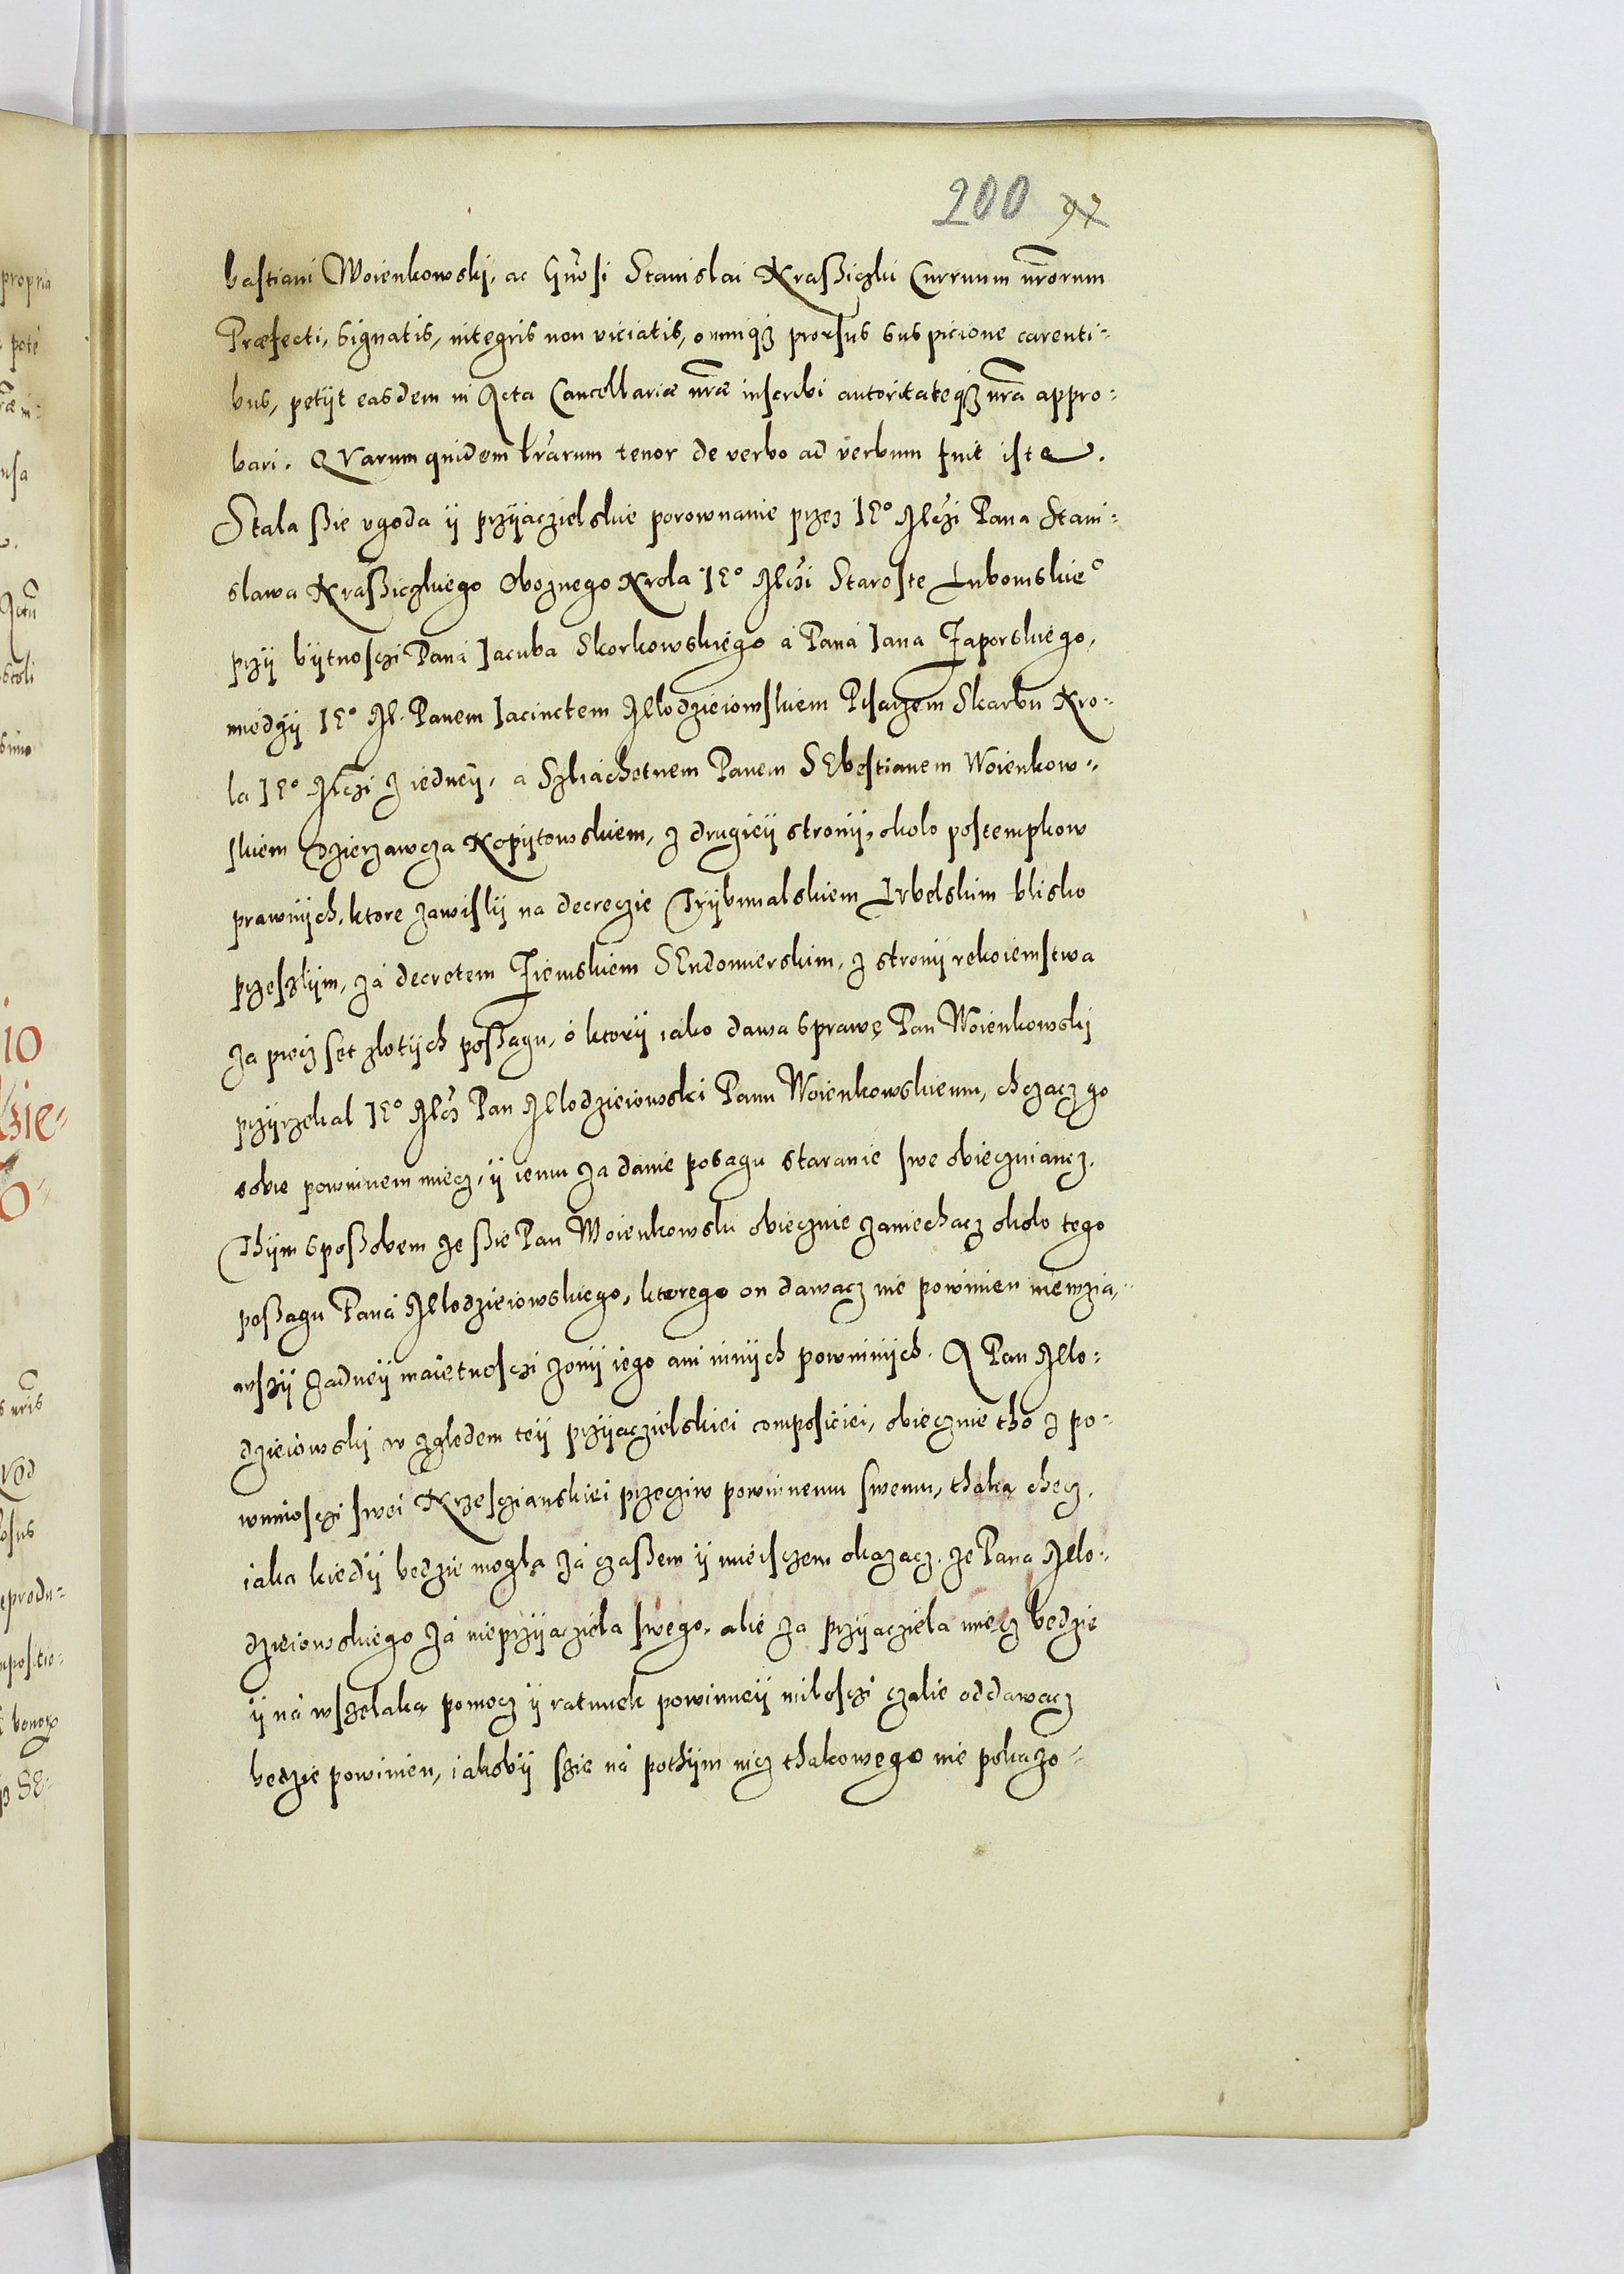 200 97
bastiani Woienkowskij, ac Gn̄osi Stanislai Kraßiczki Curruum nr̄orum
Præfecti, signatis, integris non viciatis, omniq3 prorsus suspicione carenti-
bus, petijt easdem in Acta Cancellariæ nr̄æ inscribi autoritateq3 nr̄a appro-
bari. Qvarum quidem lr̄arum tenor de verbo ad verbum fuit iste.
Stala ßie vgoda ij przijaczielskie porownanie przez IEº Mczi Pana Stani-
slawa Kraßiczkiego Oboznego Krola IEº Mczi Staroste Lubomskieº
przij bijtnosczi Paná Jacuba Skorkowskiego á Paná Jana Zaporskiego,
miedzij IEº M. Panem Jacinctem Mlodzieiowskiem Pisarzem Skarbu Kro-
la IEº Mczi z iedneij, á Szliáchetnem Panem SEbestianem Woienkow-
skiem dzierzawcza Kopijtowskiem, z drugieij stronij, okolo postempkow
prawnijch, ktore zawislij na decreczie Trijbunalskiem Lvbelskim blisko
przeszlijm, zá decretem Ziemskiem SEndomierskim, z stronij rekoiemstwa
za piecz set zlotijch poßagu, ó ktorij iáko dawa sprawę Pan Woienkowskij
przijrzekal IEº Mcz Pan Mlodzieiowski Panu Woienkowskiemu, chczacz go
sobie powinnem miecz, ij iemu za danie posagu staranie swe obieczuiancz.
Thijm sposßobem ze ßie Pan Woienkowski obieczuie zaniechacz okolo tego
poßagu Paná Mlodzieiowskiego, ktorego on dawacz nie powinien niewzia-
wszij zadneij maietnosczi zonij iego ani innijch powinnijch. A Pan Mlo-
dzieiowskij w zgledem teij przijaczielskiei composiciei, obieczuie tho z po-
winnosczi swei Krzesczianskiei przecziw powinnemu swemu, thaką checz,
iaka kiedij bedzie mogła zá czaßem ij mieisczem okazacz, ze Pana Mlo-
dzieiowskiego zá nieprzijacziela swego, alie za przijacziela miecz bedzie
ij ná wszelaką pomocz ij ratunek powinneij milosczi czalie oddawacz
bedzie powinien, iakobij szie ná pothijm nicz thakowego nie pokazo-